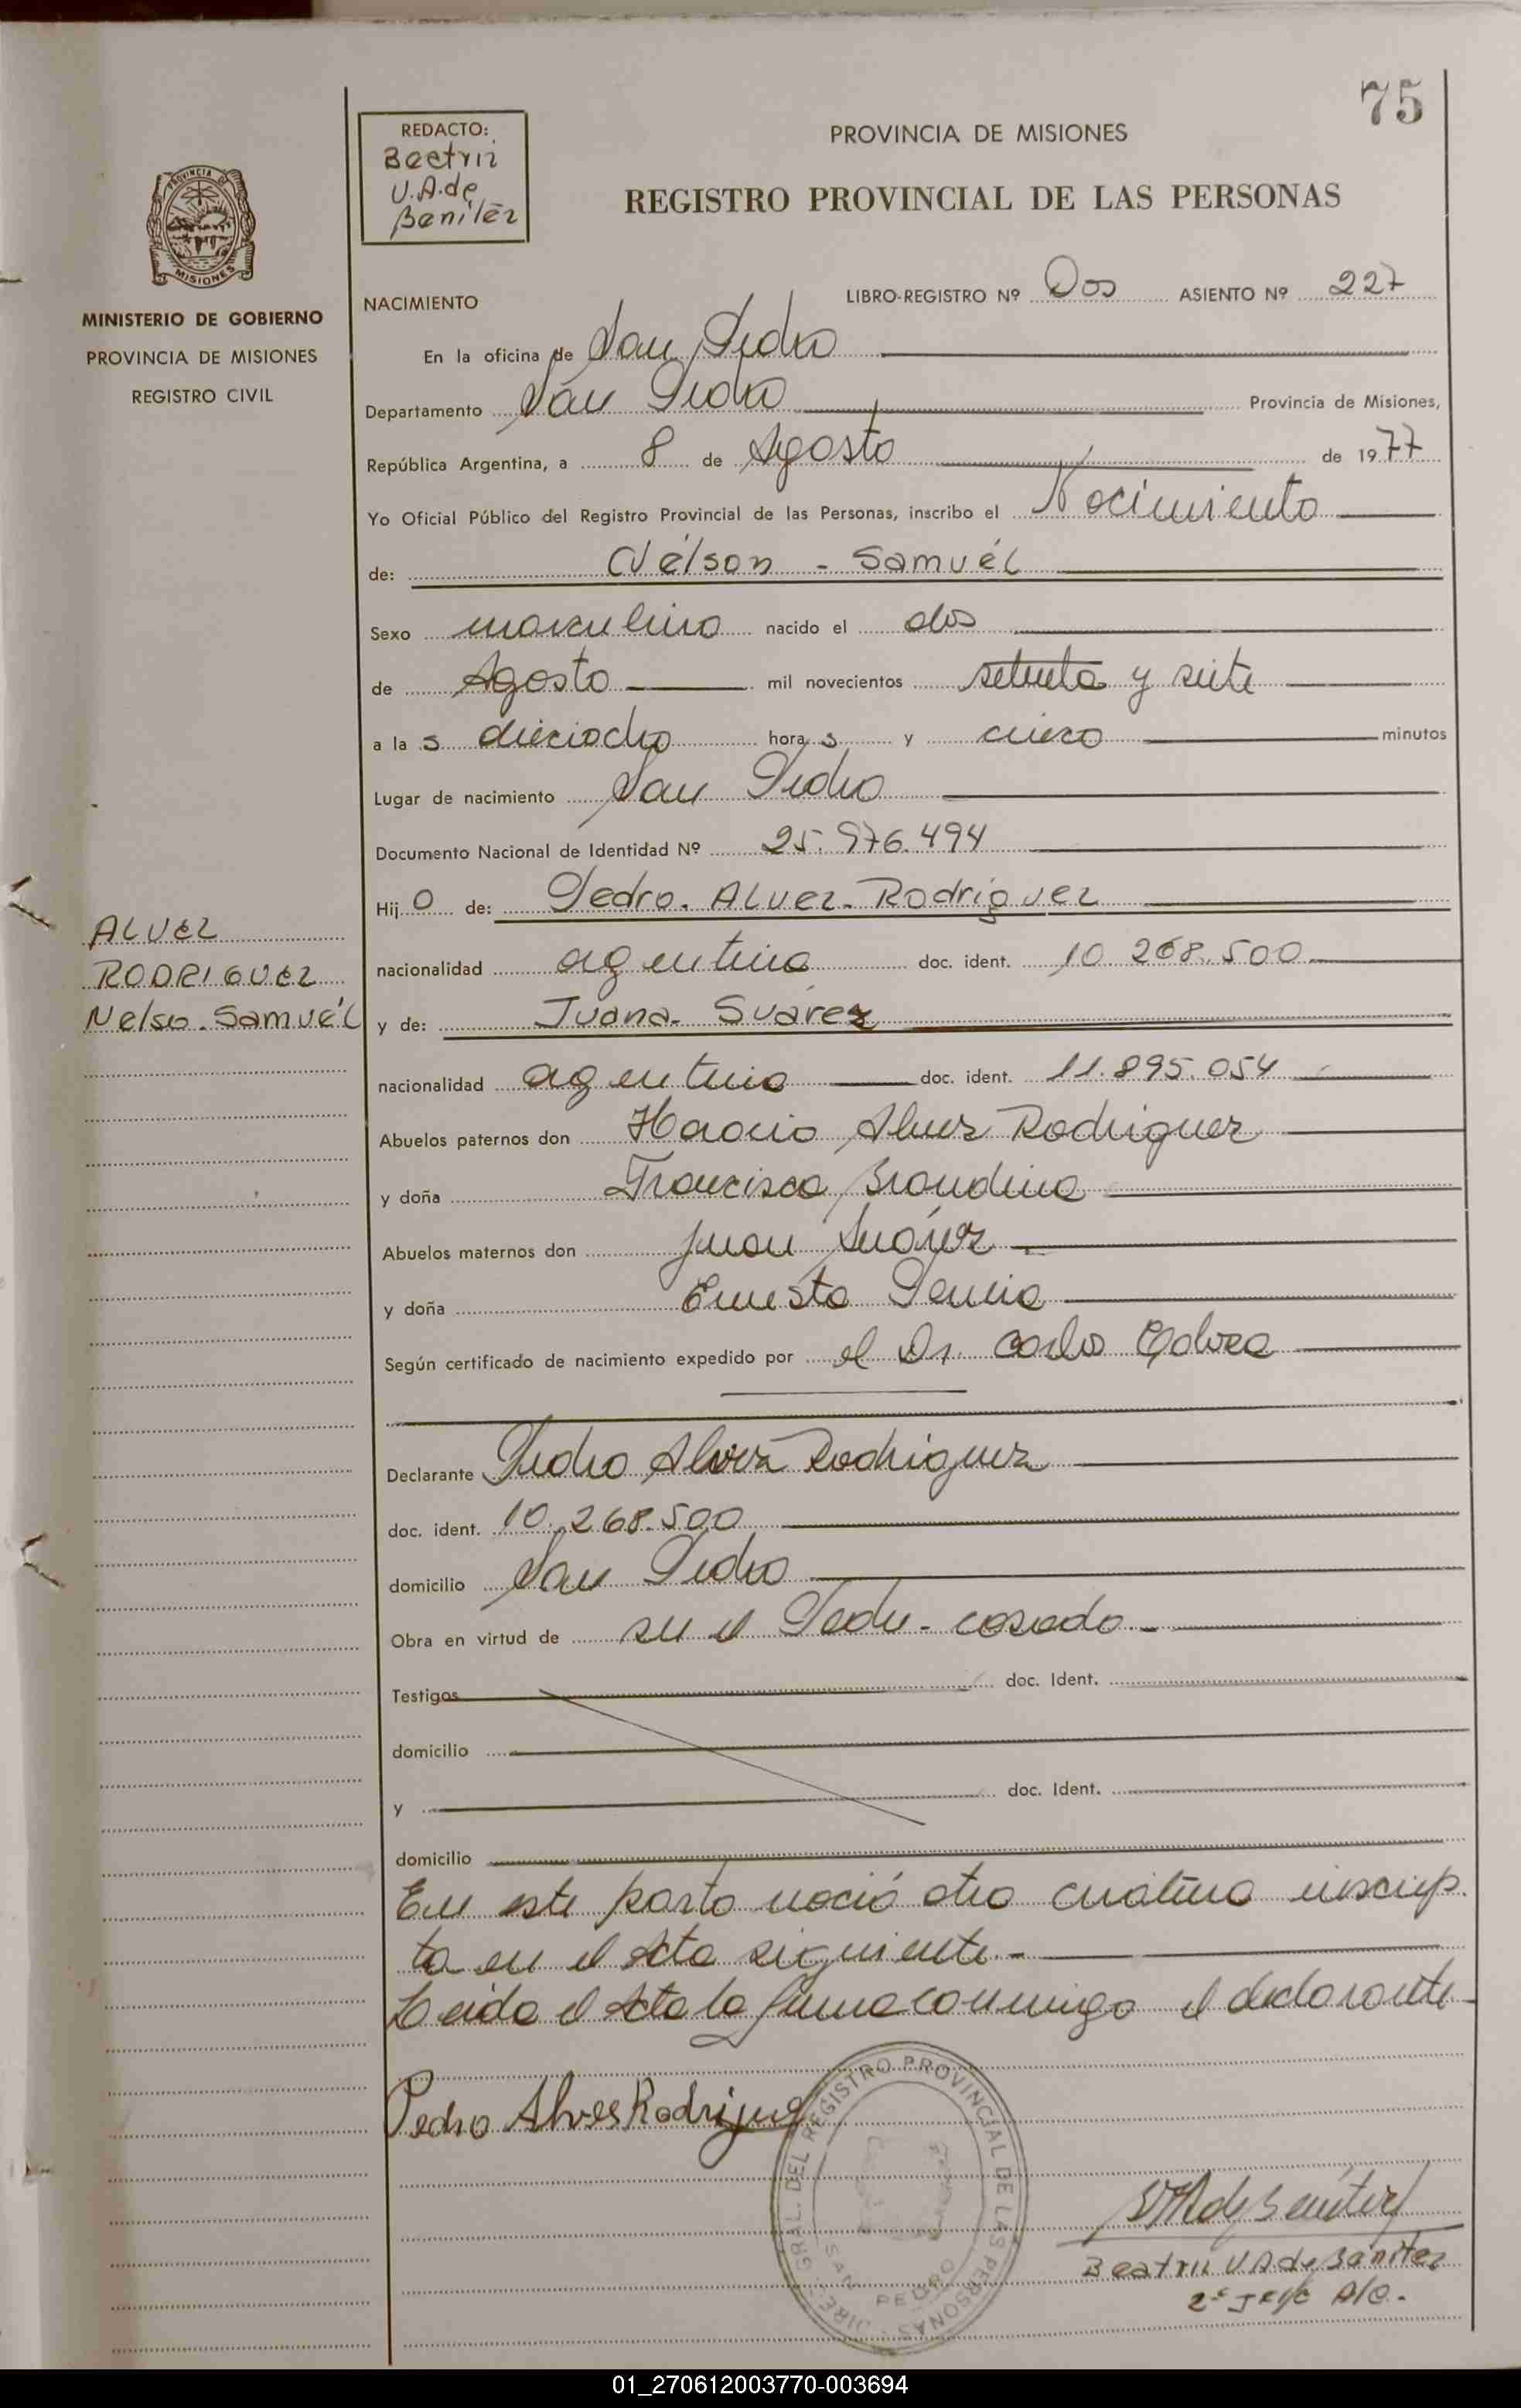 75
REDACTO:
Beatriz
V.A.de
Benitez
PROVINCIA DE MISIONES
REGISTRO PROVINCIAL DE LAS PERSONAS
PROVINCIA
MISIONES
MINISTERIO DE GOBIERNO
PROVINCIA DE MISIONES
REGISTRO CIVIL
NACIMIENTO
LIBRO-REGISTRO Nº Dos ASIENTO Nº 227
En la oficina de San Pedro
Departamento San Pedro Provincia de Misiones,
República Argentina, a 8 de Agosto de 1977
Yo Oficial Público del Registro Provincial de las Personas, inscribo el Nacimiento
de: Nélson - Samuél
Sexo masculino nacido el dos
de Agosto mil novecientos setenta y siete
a la s dieciocho hora s y cinco minutos
Lugar de nacimiento San Pedro
Documento Nacional de Identidad Nº 25.976.494
Hij o de: Pedro. ALVEZ. Rodriguez
nacionalidad argentina doc. ident. 10.268.500
y de: Juana. Suárez
nacionalidad argentina doc. ident. 11.895.054
Abuelos paternos don Horacio Alvez Rodriguez
y doña Francisca Brandina
Abuelos maternos don Juan Suárez
y doña Ernesta
Según certificado de nacimiento expedido por el Dr. Carlos
ALVEZ
RODRIGUEZ
Nelso. Samuél
Declarante Pedro Alvez Rodriguez
doc. ident. 10.268.500
domicilio San Pedro
Obra en virtud de ser el Padre - casado.-
Testigos doc. Ident.
domicilio
y doc. Ident.
domicilio
En este parto nació otra criatura inscrip
ta en el Acta siguiente.-
Leida el Acta la firma conmigo el declarante
Pedro Alves Rodrigue
DIREC. GRAL. DEL REGISTRO PROVINCIAL DE LAS PERSONAS
SAN PEDRO
Beatriz V A de Benitez
2º Jefe A/C.
01_270612003770-003694